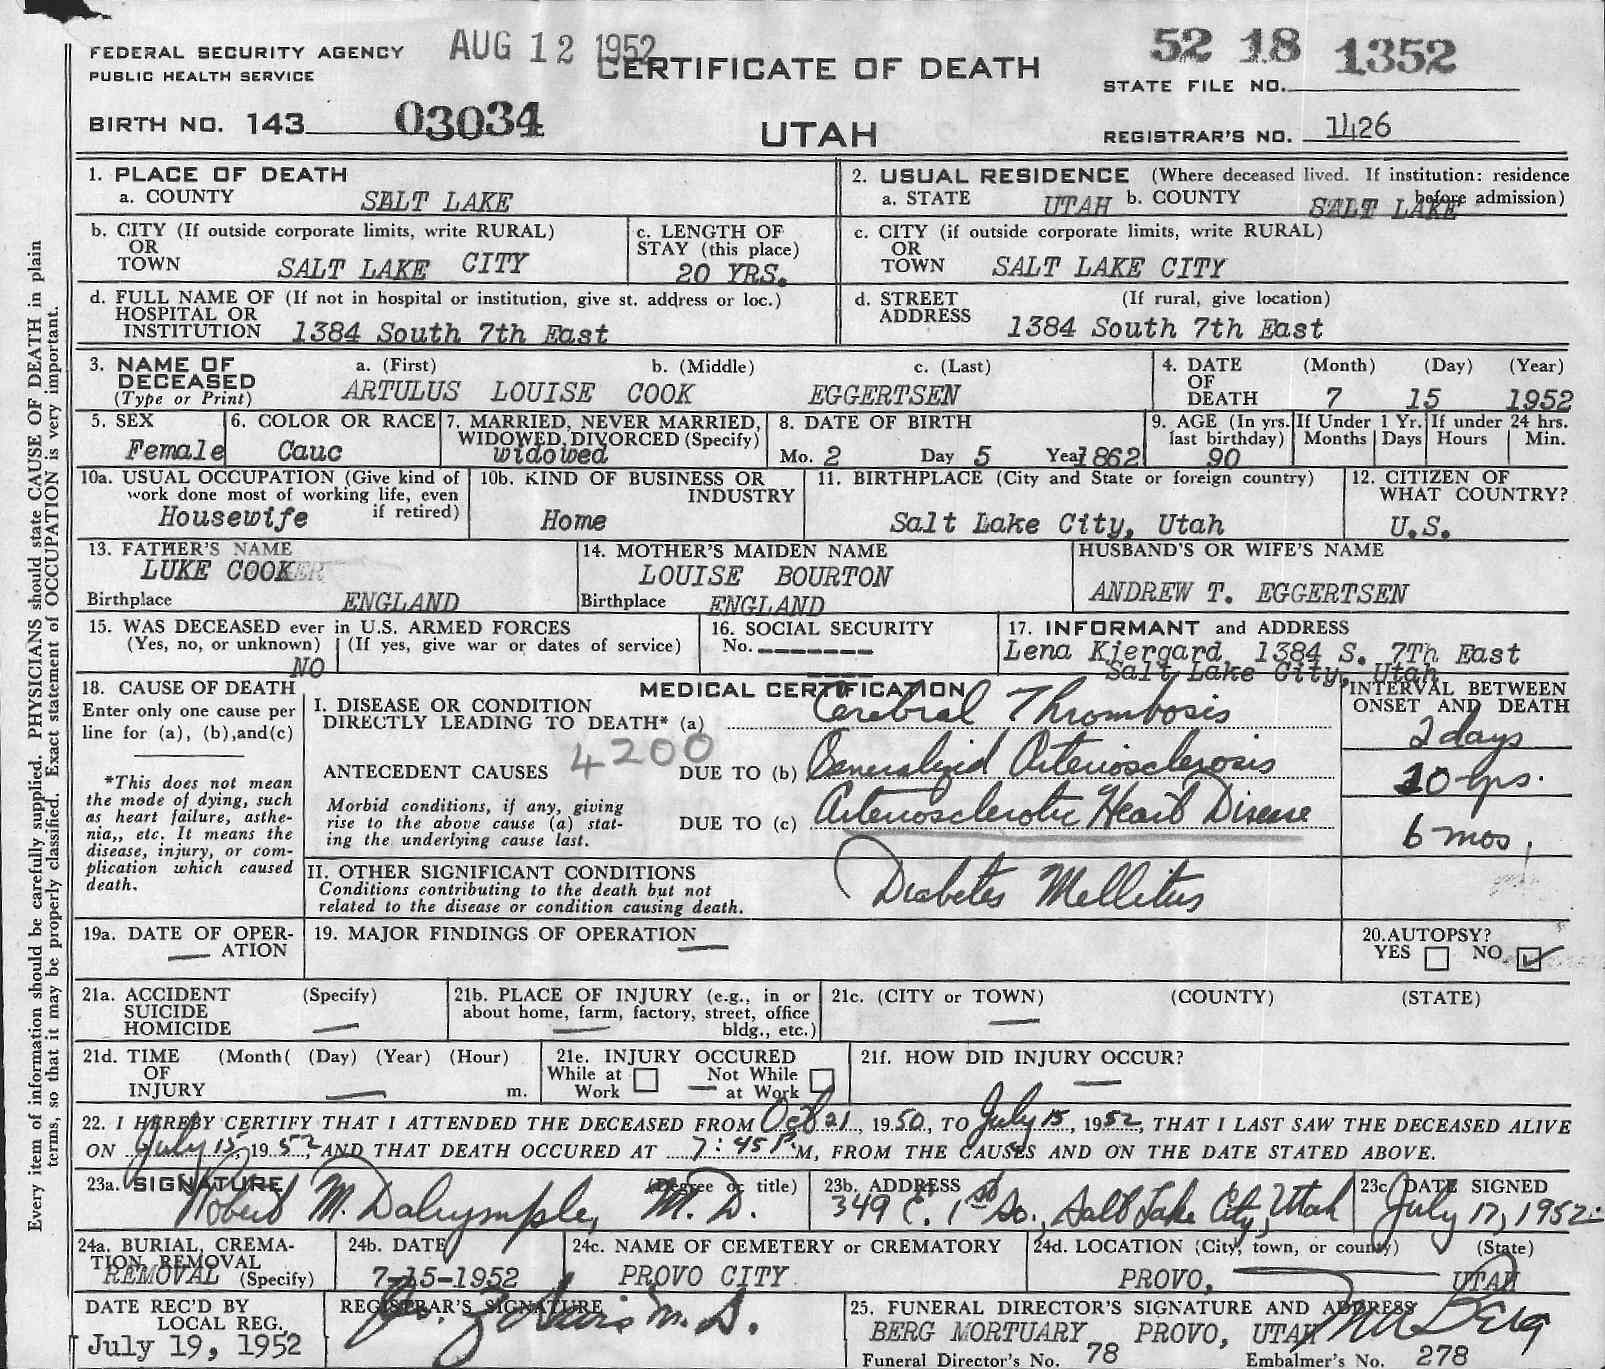 AUG 12 1952
52 18 1352
FEDERAL SECURITY AGENCY
PUBLIC HEALTH SERVICE
CERTIFICATE OF DEATH
STATE FILE NO.
BIRTH NO. 143 03034
UTAH
REGISTRAR'S NO. 1426
1. PLACE OF DEATH
a. COUNTY SALT LAKE
2. USUAL RESIDENCE (Where deceased lived. If institution: residence before admission)
a. STATE UTAH b. COUNTY SALT LAKE
b. CITY (If outside corporate limits, write RURAL)
OR
TOWN SALT LAKE CITY
c. LENGTH OF
STAY (this place)
20 YRS.
c. CITY (if outside corporate limits, write RURAL)
OR
TOWN SALT LAKE CITY
d. FULL NAME OF (If not in hospital or institution, give st. address or loc.)
HOSPITAL OR
INSTITUTION 1384 South 7th East
d. STREET (If rural, give location)
ADDRESS 1384 South 7th East
3. NAME OF
DECEASED
(Type or Print)
a. (First) b. (Middle) c. (Last)
ARTULUS LOUISE COOK EGGERTSEN
4. DATE (Month) (Day) (Year)
OF
DEATH 7 15 1952
5. SEX
Female
6. COLOR OR RACE
Cauc
7. MARRIED, NEVER MARRIED,
WIDOWED, DIVORCED (Specify)
widowed
8. DATE OF BIRTH
Mo. 2 Day 5 Year 1862
9. AGE (In yrs.
last birthday)
90
If Under 1 Yr.
Months Days
If under 24 hrs.
Hours Min.
10a. USUAL OCCUPATION (Give kind of
work done most of working life, even
if retired)
Housewife
10b. KIND OF BUSINESS OR
INDUSTRY
Home
11. BIRTHPLACE (City and State or foreign country)
Salt Lake City, Utah
12. CITIZEN OF
WHAT COUNTRY?
U.S.
13. FATHER'S NAME
LUKE COOKER
Birthplace ENGLAND
14. MOTHER'S MAIDEN NAME
LOUISE BOURTON
Birthplace ENGLAND
HUSBAND'S OR WIFE'S NAME
ANDREW T. EGGERTSEN
15. WAS DECEASED ever in U.S. ARMED FORCES
(Yes, no, or unknown) (If yes, give war or dates of service)
NO
16. SOCIAL SECURITY
No. -------
17. INFORMANT and ADDRESS
Lena Kjergard 1384 S. 7Th East
Salt Lake City, Utah
18. CAUSE OF DEATH
Enter only one cause per
line for (a), (b),and(c)
*This does not mean
the mode of dying, such
as heart failure, asthe-
nia,, etc. It means the
disease, injury, or com-
plication which caused
death.
MEDICAL CERTIFICATION
I. DISEASE OR CONDITION
DIRECTLY LEADING TO DEATH* (a) Cerebral Thrombosis
4200
ANTECEDENT CAUSES DUE TO (b) Generalized Arteriosclerosis
Morbid conditions, if any, giving
rise to the above cause (a) stat-
ing the underlying cause last.
DUE TO (c) Arteriosclerotic Heart Disease
INTERVAL BETWEEN
ONSET AND DEATH
2 days
10 yrs.
6 mos.
II. OTHER SIGNIFICANT CONDITIONS
Conditions contributing to the death but not
related to the disease or condition causing death.
Diabetes Mellitus
19a. DATE OF OPER-
ATION
19. MAJOR FINDINGS OF OPERATION
20.AUTOPSY?
YES NO
21a. ACCIDENT (Specify)
SUICIDE
HOMICIDE
21b. PLACE OF INJURY (e.g., in or
about home, farm, factory, street, office
bldg., etc.)
21c. (CITY or TOWN) (COUNTY) (STATE)
21d. TIME (Month( (Day) (Year) (Hour)
OF
INJURY m.
21e. INJURY OCCURED
While at Work
Not While at Work
21f. HOW DID INJURY OCCUR?
22. I HEREBY CERTIFY THAT I ATTENDED THE DECEASED FROM Oct 21, 1950, TO July 15, 1952, THAT I LAST SAW THE DECEASED ALIVE
ON July 15, 1952, AND THAT DEATH OCCURED AT 7:45 P.M, FROM THE CAUSES AND ON THE DATE STATED ABOVE.
23a. SIGNATURE (Degree or title)
Robert M. Dalrymple, M.D.
23b. ADDRESS
349 E. 1st So., Salt Lake City, Utah
23c. DATE SIGNED
July 17, 1952
24a. BURIAL, CREMA-
TION, REMOVAL
REMOVAL (Specify)
24b. DATE
7-15-1952
24c. NAME OF CEMETERY or CREMATORY
PROVO CITY
24d. LOCATION (City, town, or county) (State)
PROVO, UTAH
DATE REC'D BY
LOCAL REG.
July 19, 1952
REGISTRAR'S SIGNATURE
M.D.
25. FUNERAL DIRECTOR'S SIGNATURE AND ADDRESS
BERG MORTUARY PROVO, UTAH Berg
Funeral Director's No. 78 Embalmer's No. 278
Every item of information should be carefully supplied. PHYSICIANS should state CAUSE OF DEATH in plain
terms, so that it may be properly classified. Exact statement of OCCUPATION is very important.